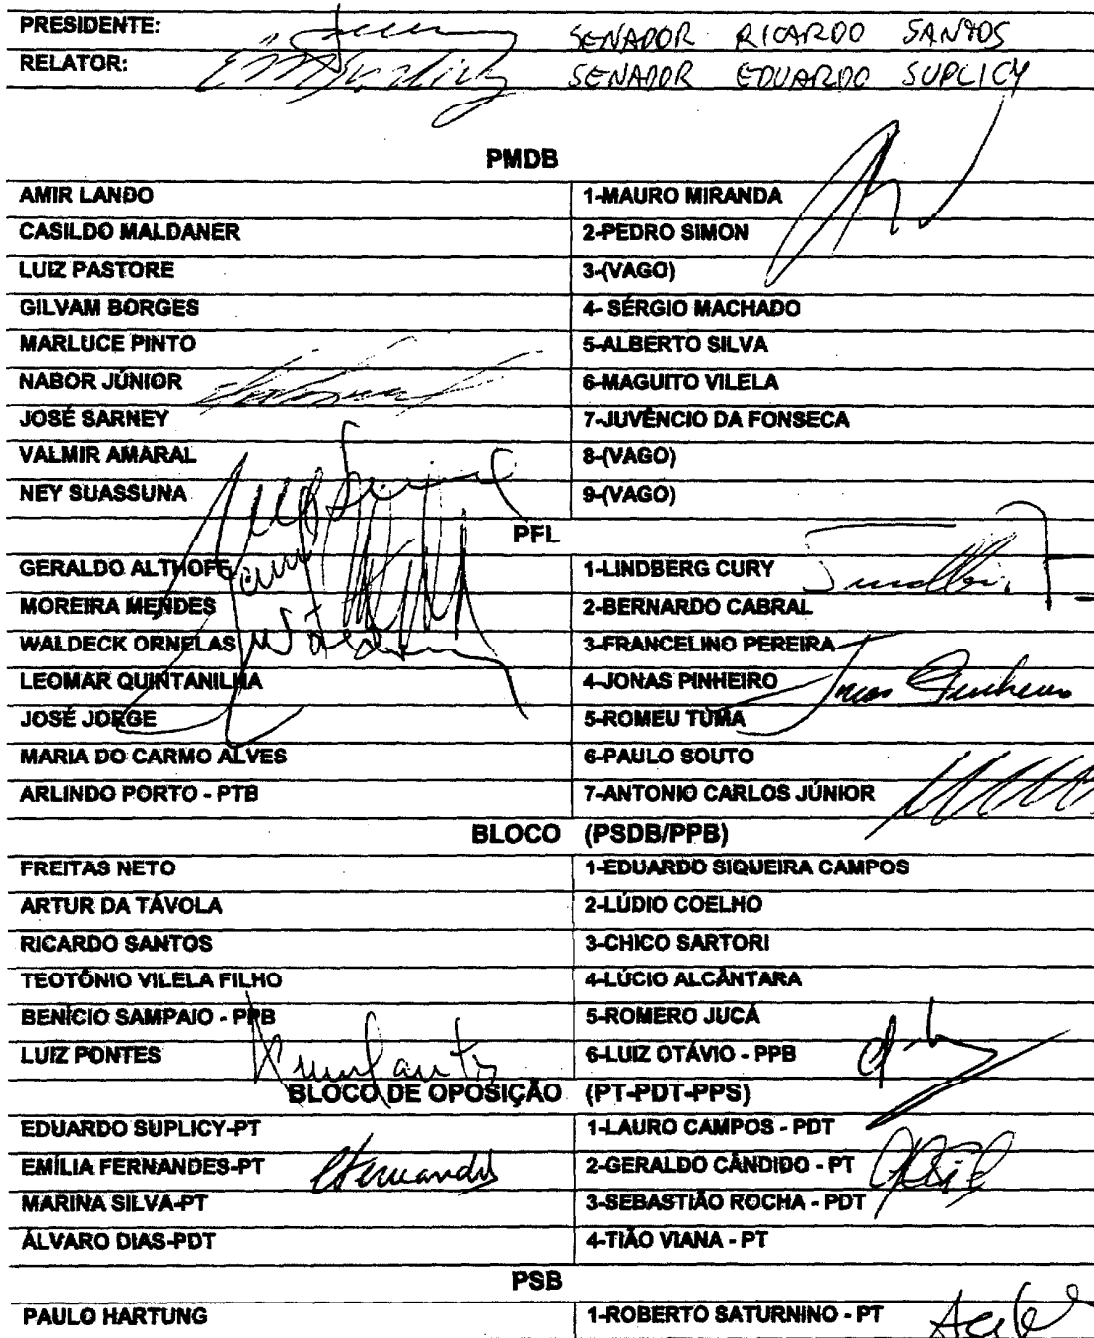 PRESIDENTE: SENADOR RICARDO SANTOS
RELATOR: SENADOR EDUARDO SUPLICY
PMDB
AMIR LANDO 1-MAURO MIRANDA
CASILDO MALDANER 2-PEDRO SIMON
LUIZ PASTORE 3-(VAGO)
GILVAM BORGES 4- SÉRGIO MACHADO
MARLUCE PINTO 5-ALBERTO SILVA
NABOR JÚNIOR 6-MAGUITO VILELA
JOSÉ SARNEY 7-JUVÊNCIO DA FONSECA
VALMIR AMARAL 8-(VAGO)
NEY SUASSUNA 9-(VAGO)
PFL
GERALDO ALTHOFF 1-LINDBERG CURY
MOREIRA MENDES 2-BERNARDO CABRAL
WALDECK ORNELAS 3-FRANCELINO PEREIRA
LEOMAR QUINTANILHA 4-JONAS PINHEIRO Jonas Pinheiro
JOSÉ JORGE 5-ROMEU TUMA
MARIA DO CARMO ALVES 6-PAULO SOUTO
ARLINDO PORTO - PTB 7-ANTONIO CARLOS JÚNIOR
BLOCO (PSDB/PPB)
FREITAS NETO 1-EDUARDO SIQUEIRA CAMPOS
ARTUR DA TÁVOLA 2-LÚDIO COELHO
RICARDO SANTOS 3-CHICO SARTORI
TEOTÔNIO VILELA FILHO 4-LÚCIO ALCÂNTARA
BENÍCIO SAMPAIO - PPB 5-ROMERO JUCÁ
LUIZ PONTES 6-LUIZ OTÁVIO - PPB
BLOCO DE OPOSIÇÃO (PT-PDT-PPS)
EDUARDO SUPLICY-PT 1-LAURO CAMPOS - PDT
EMÍLIA FERNANDES-PT 2-GERALDO CÂNDIDO - PT
MARINA SILVA-PT 3-SEBASTIÃO ROCHA - PDT
ÁLVARO DIAS-PDT 4-TIÃO VIANA - PT
PSB
PAULO HARTUNG 1-ROBERTO SATURNINO - PT